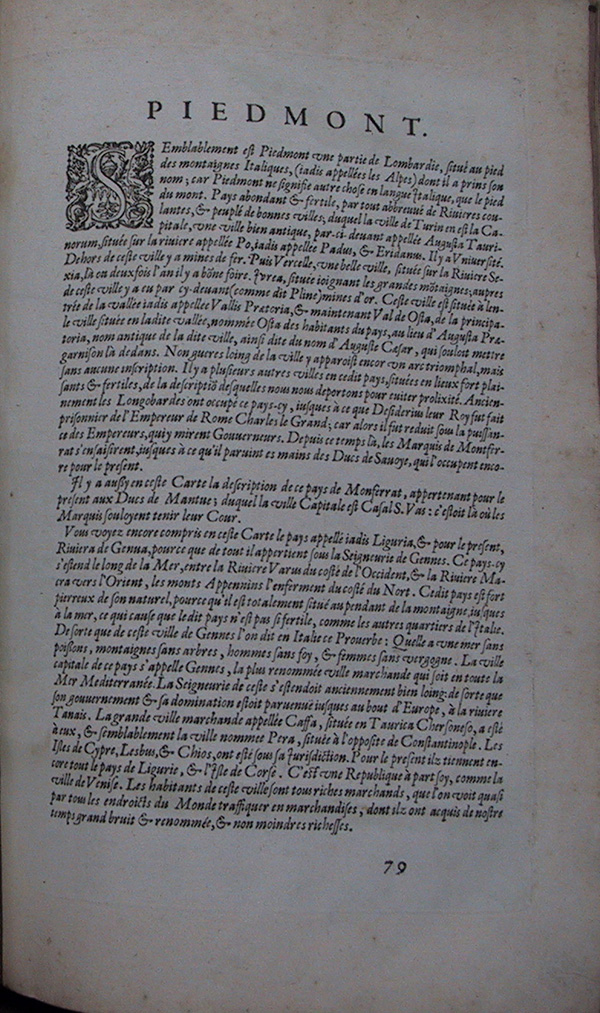 PIEDMONT.
SEmblablement est Piedmont vne partie de Lombardie, situé au pied
des montaignes Italiques, (iadis appellées les Alpes) dont il a prins son
nom; car Piedmont ne signifie autre chose en langue Italique, que le pied
du mont. Pays abondant & fertile, par tout abbreuué de Riuieres cou-
lantes, & peuplé de bonnes villes, duquel la ville de Turin en est la Ca-
pitale, vne ville bien antique, par-ci-deuant appellée Augusta Tauri-
norum, située sur la riuiere appellée Po, iadis appellée Padus, & Eridanus. Il y a Vniuersité.
Dehors de ceste ville y a mines de fer. Puis Vercelle, vne belle ville, située sur la Riuiere Se-
xia, là ou deux fois l'an il y a bône foire. Jurea, située ioignant les grandes môtaignes; autres
de ceste ville y a eu par cy-deuant (comme dit Pline) mines d'or. Ceste ville est située à len-
trée de la vallée iadis appellée Vallis Prætoria, & maintenant Val de Osta, de la principa-
le ville située en ladite vallée, nommée Osta des habitants du pays, au lieu d'Augusta Præ-
toria, nom antique de la dite ville, ainsi dite du nom d'Auguste Cæsar, qui souloit mettre
garnison là dedans. Non gueres loing de la ville y apparoist encor vn arc triomphal, mais
sans aucune inscription. Il y a plusieurs autres villes en cedit pays, situées en lieux fort plai-
sants & fertiles, de la descriptiô desquelles nous nous deportons pour euiter prolixité. Ancien-
nement les Longobardes ont occupé ce pays-cy, iusques à ce que Desiderius leur Roy fut fait
prisonnier de l'Empereur de Rome Charles le Grand; car alors il fut reduit sous la puissan-
ce des Empereurs, qui y mirent Gouuerneurs. Depuis ce temps là, les Marquis de Montfer-
rat s'ensaisirent, iusques à ce qu'il paruint es mains des Ducs de Sauoye, qui l'occupent enco-
re pour le present.
Il y a aussy en ceste Carte la description de ce pays de Monferrat, appertenant pour le
present aux Ducs de Mantue; duquel la ville Capitale est Casal S. Vas: c'estoit là où les
Marquis souloyent tenir leur Cour.
Vous voyez encore compris en ceste Carte le pays appellé iadis Liguria, & pour le present,
Riuiera de Genua, pource que de tout il appertient sous la Seigneurie de Gennes. Ce pays-cy
s'estend le long de la Mer, entre la Riuiere Varus du costé de l'Occident, & la Riuiere Ma-
cra vers l'Orient, les monts Appennins l'enferment du costé du Nort. Cedit pays est fort
pierreux de son naturel, pource qu'il est totalement situé au pendant de la montaigne, iusques
à la mer, ce qui cause que ledit pays n'est pas si fertile, comme les autres quartiers de l'Italie.
De sorte que de ceste ville de Gennes l'on dit en Italie ce Prouerbe: Quelle a vne mer sans
poissons, montaignes sans arbres, hommes sans foy, & femmes sans vergogne. La ville
capitale de ce pays s'appelle Gennes, la plus renommée ville marchande qui soit en toute la
Mer Mediterranée. La Seigneurie de ceste s'estendoit anciennement bien loing: de sorte que
son gouuernement & sa domination estoit paruenuë iusques au bout d'Europe, à la riuiere
Tanais. La grande ville marchande appellée Caffa, située en Taurica Chersoneso, a esté
à eux, & semblablement la ville nommée Pera, située à l'opposite de Constantinople. Les
Isles de Cypre, Lesbus, & Chios, ont esté sous sa Jurisdiction. Pour le present ilz tiennent en-
core tout le pays de Ligurie, & l'Isle de Corse. C'est vne Republique à part soy, comme la
ville de Venise. Les habitants de ceste ville sont tous riches marchands, que l'on voit quasi
par tous les endroicts du Monde traffiquer en marchandises, dont ilz ont acquis de nostre
temps grand bruit & renommée, & non moindres richesses.
79